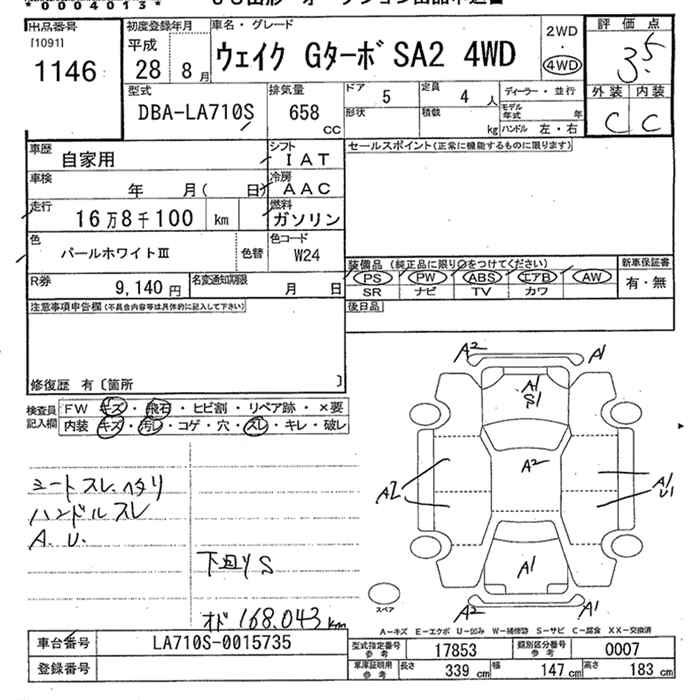 *0004013*
出品番号
[1091]
1146
初度登録年月
平成
28年 8月
車名・グレード
ウェイク Gターボ SA2 4WD
2WD
・
4WD
評価点
3.5
外装 内装
C C
型式
DBA-LA710S
排気量
658 CC
ドア 5
定員 4 人
形状
積載 kg
ディーラー・並行
モデル年式 年
ハンドル 左・右
車歴 自家用
シフト IAT
車検 年 月( 日)
冷房 AAC
走行 16万8千100 km
燃料 ガソリン
色 パールホワイトⅢ 色替
色コード W24
R券 9,140円
名変通知期限 月 日
セールスポイント(正常に機能するものに限ります)
装備品(純正品に限り○をつけてください)
PS PW ABS エアB AW
SR ナビ TV カワ
新車保証書
有・無
後日品
注意事項申告欄(不具合内容等は具体的に記入して下さい)
修復歴 有〔箇所 〕
検査員記入欄
FW キズ・飛石・ヒビ割・リペア跡・×要
内装 キズ・汚レ・コゲ・穴・スレ・キレ・破レ
シートスレ、ヘタリ
ハンドルスレ
A.U.
下回りS
オド 168,043km
A2 A1
A1
S1
A2
A2
A1
U1
A1
A2 A1
スペア
A-キズ E-エクボ U-凹み W-補修跡 S-サビ C-腐食 XX-交換済
車台番号 LA710S-0015735
登録番号
型式指定番号 参考 17853
類別区分番号 参考 0007
車庫証明用 参考 長さ 339 cm 幅 147 cm 高さ 183 cm